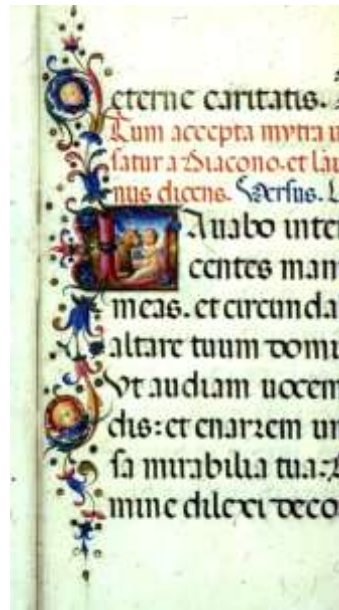 eterne caritatis.
Cum accepta mytra u
satur a Diacono. et lau
nus dicens. Versus. L
Lauabo inter
centes man
meas. et circunda
altare tuum domi
Vt audiam uocem
dis: et enarrem un
sa mirabilia tua:
mine dilexi deco